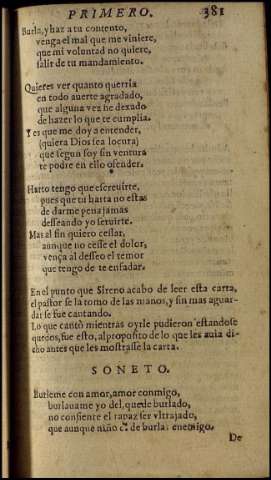 PRIMERO. 381
Burla, y haz a tu contento,
venga el mal que me viniere,
que mi voluntad no quiere,
salir de tu mandamiento.
Quieres ver quanto querria
en todo auerte agradado,
que alguna vez he dexado
de hazer lo que te cumplia.
Y es que me doy a entender,
(quiera Dios sea locura)
que segun soy sin ventura
te podre en ello ofender.
Harto tengo que escreuirte,
pues que tu harta no estas
de darme pena jamas
desseando yo seruirte.
Mas al fin quiero cessar,
aunque no cesse el dolor,
vença al desseo el temor
que tengo de te enfadar.
En el punto que Sireno acabo de leer esta carta,
el pastor se la tomo de las manos, y sin mas aguar-
dar se fue cantando.
Lo que cantò mientras oyrle pudieron estandose
quedos, fue esto, al proposito de lo que les auia di-
cho antes que les mostrasse la carta.
SONETO.
Burleme con amor, amor conmigo,
burlauame yo del, quede burlado,
no consiente el rapaz ser vltrajado,
que aunque niño es de burlas enemigo.
De